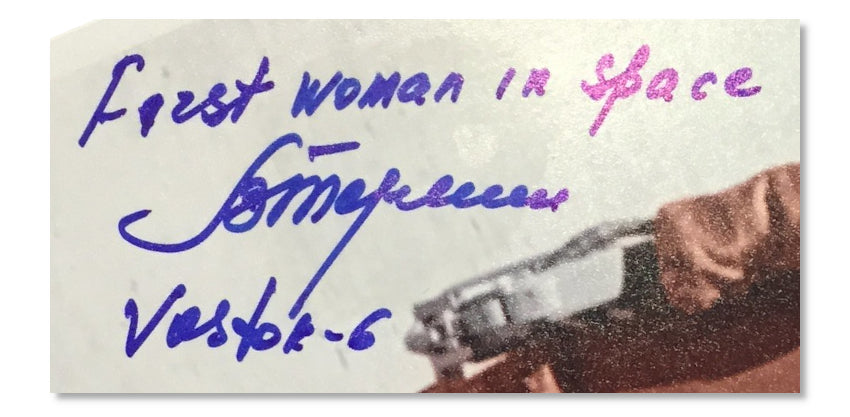 First woman in space
Vostok-6